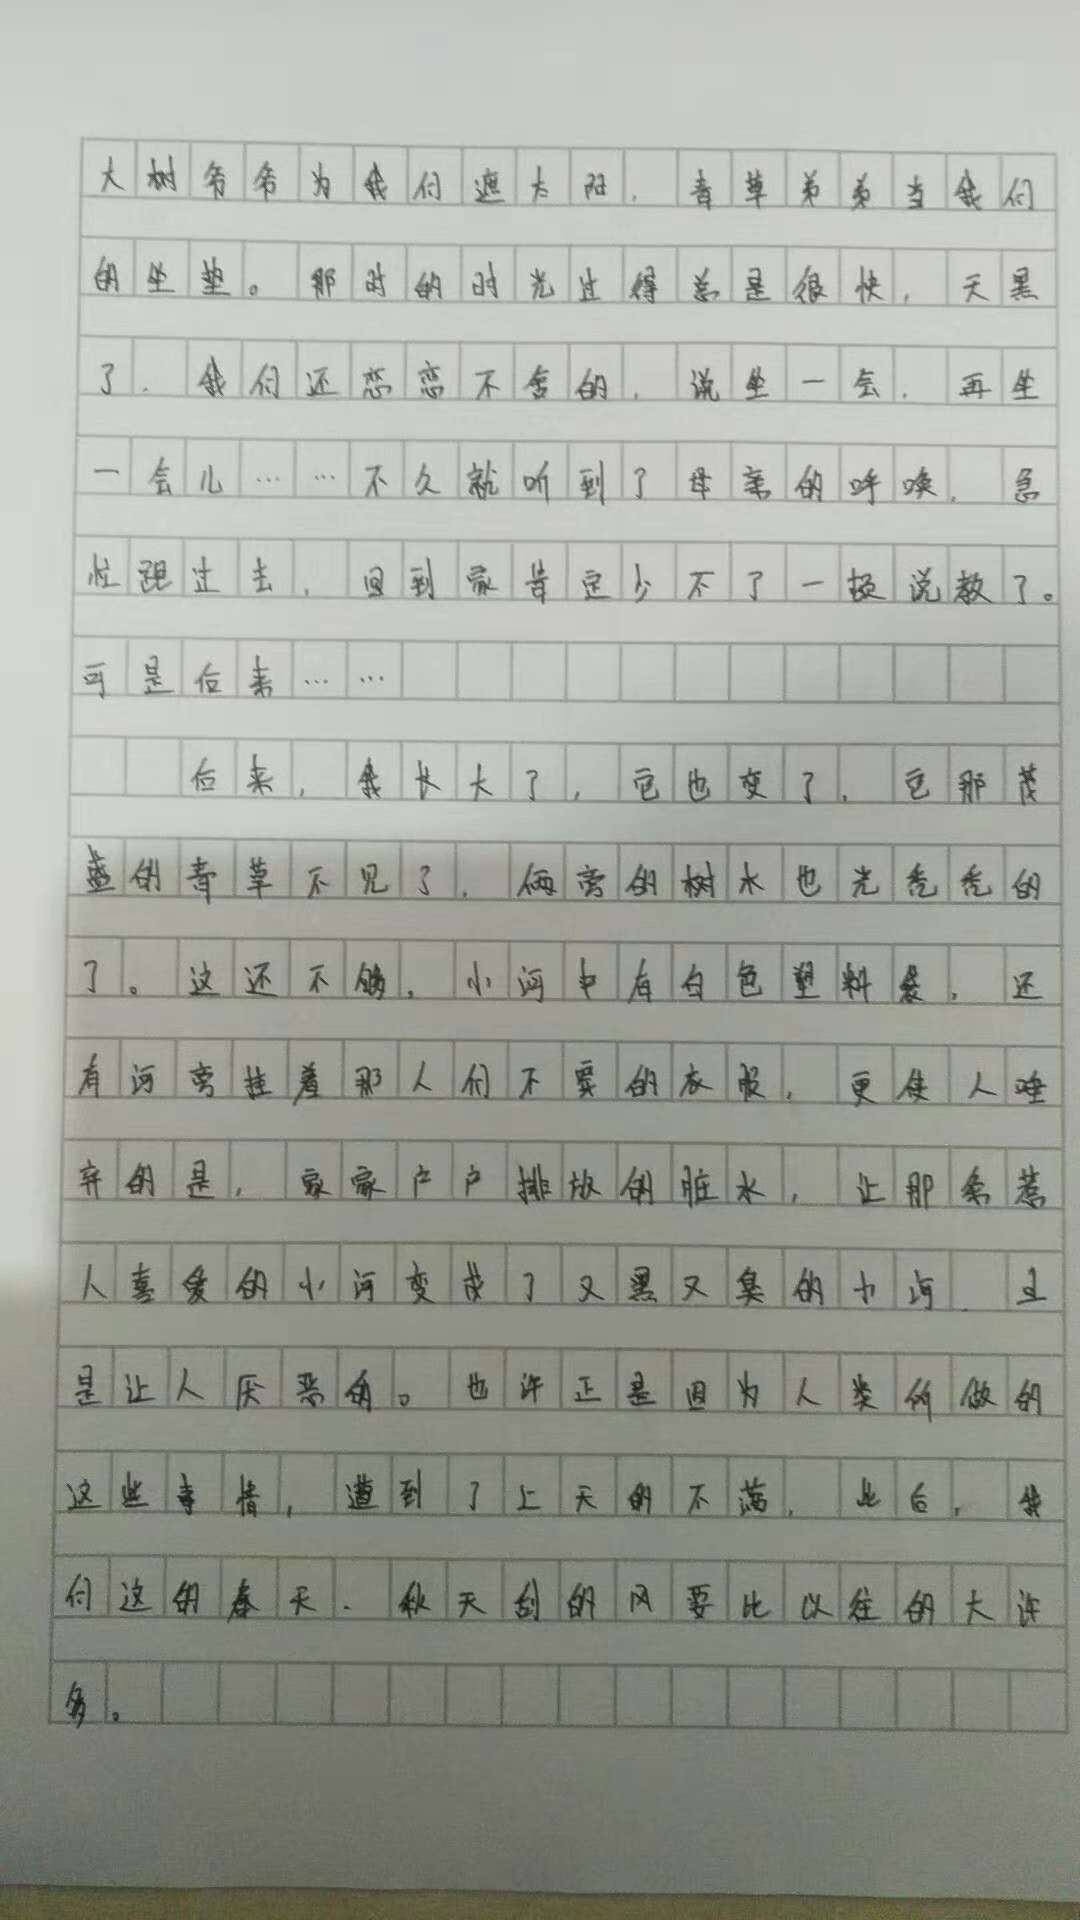 大树爷爷为我们遮太阳，青草弟弟当我们
的坐垫。那时的时光过得总是很快，天黑
了，我们还恋恋不舍的，说坐一会，再坐
一会儿……不久就听到了母亲的呼唤，急
忙跑过去，回到家肯定少不了一顿说教了。
可是后来……
后来，我长大了，它也变了，它那茂
盛的青草不见了，俩旁的树木也光秃秃的
了。这还不够，小河中有白色塑料袋，还
有河旁挂着那人们不要的衣服，更使人唾
弃的是，家家户户排放的脏水，让那条惹
人喜爱的小河变成了又黑又臭的小河，
是让人厌恶的。也许正是因为人类所做的
这些事情，遭到了上天的不满，此后，我
们这的春天、秋天刮的风要比以往的大许
多。